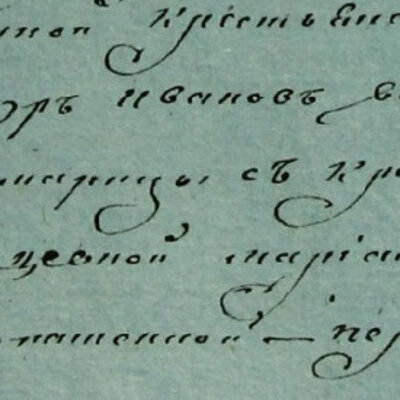 ной крестьянс
ръ Ивановъ в
марицы, съ кр
цевной марiа
пашенной — пер